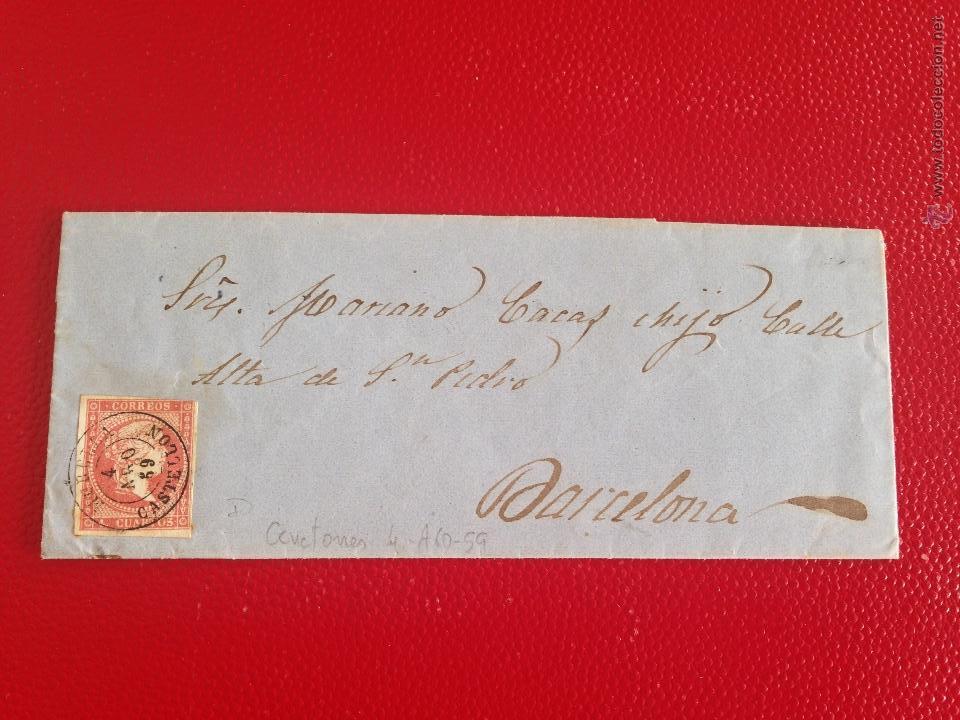 www.todocoleccion.net
Srēs. Mariano Cacas é hijo Calle
Alta de S.n Pedro
Barcelona
CORREOS
4
AGO
59
CASTELLON
CUARTOS
4-AGO-59